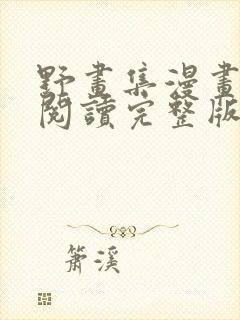 野畫集漫畫
閱讀完整版
簫溪